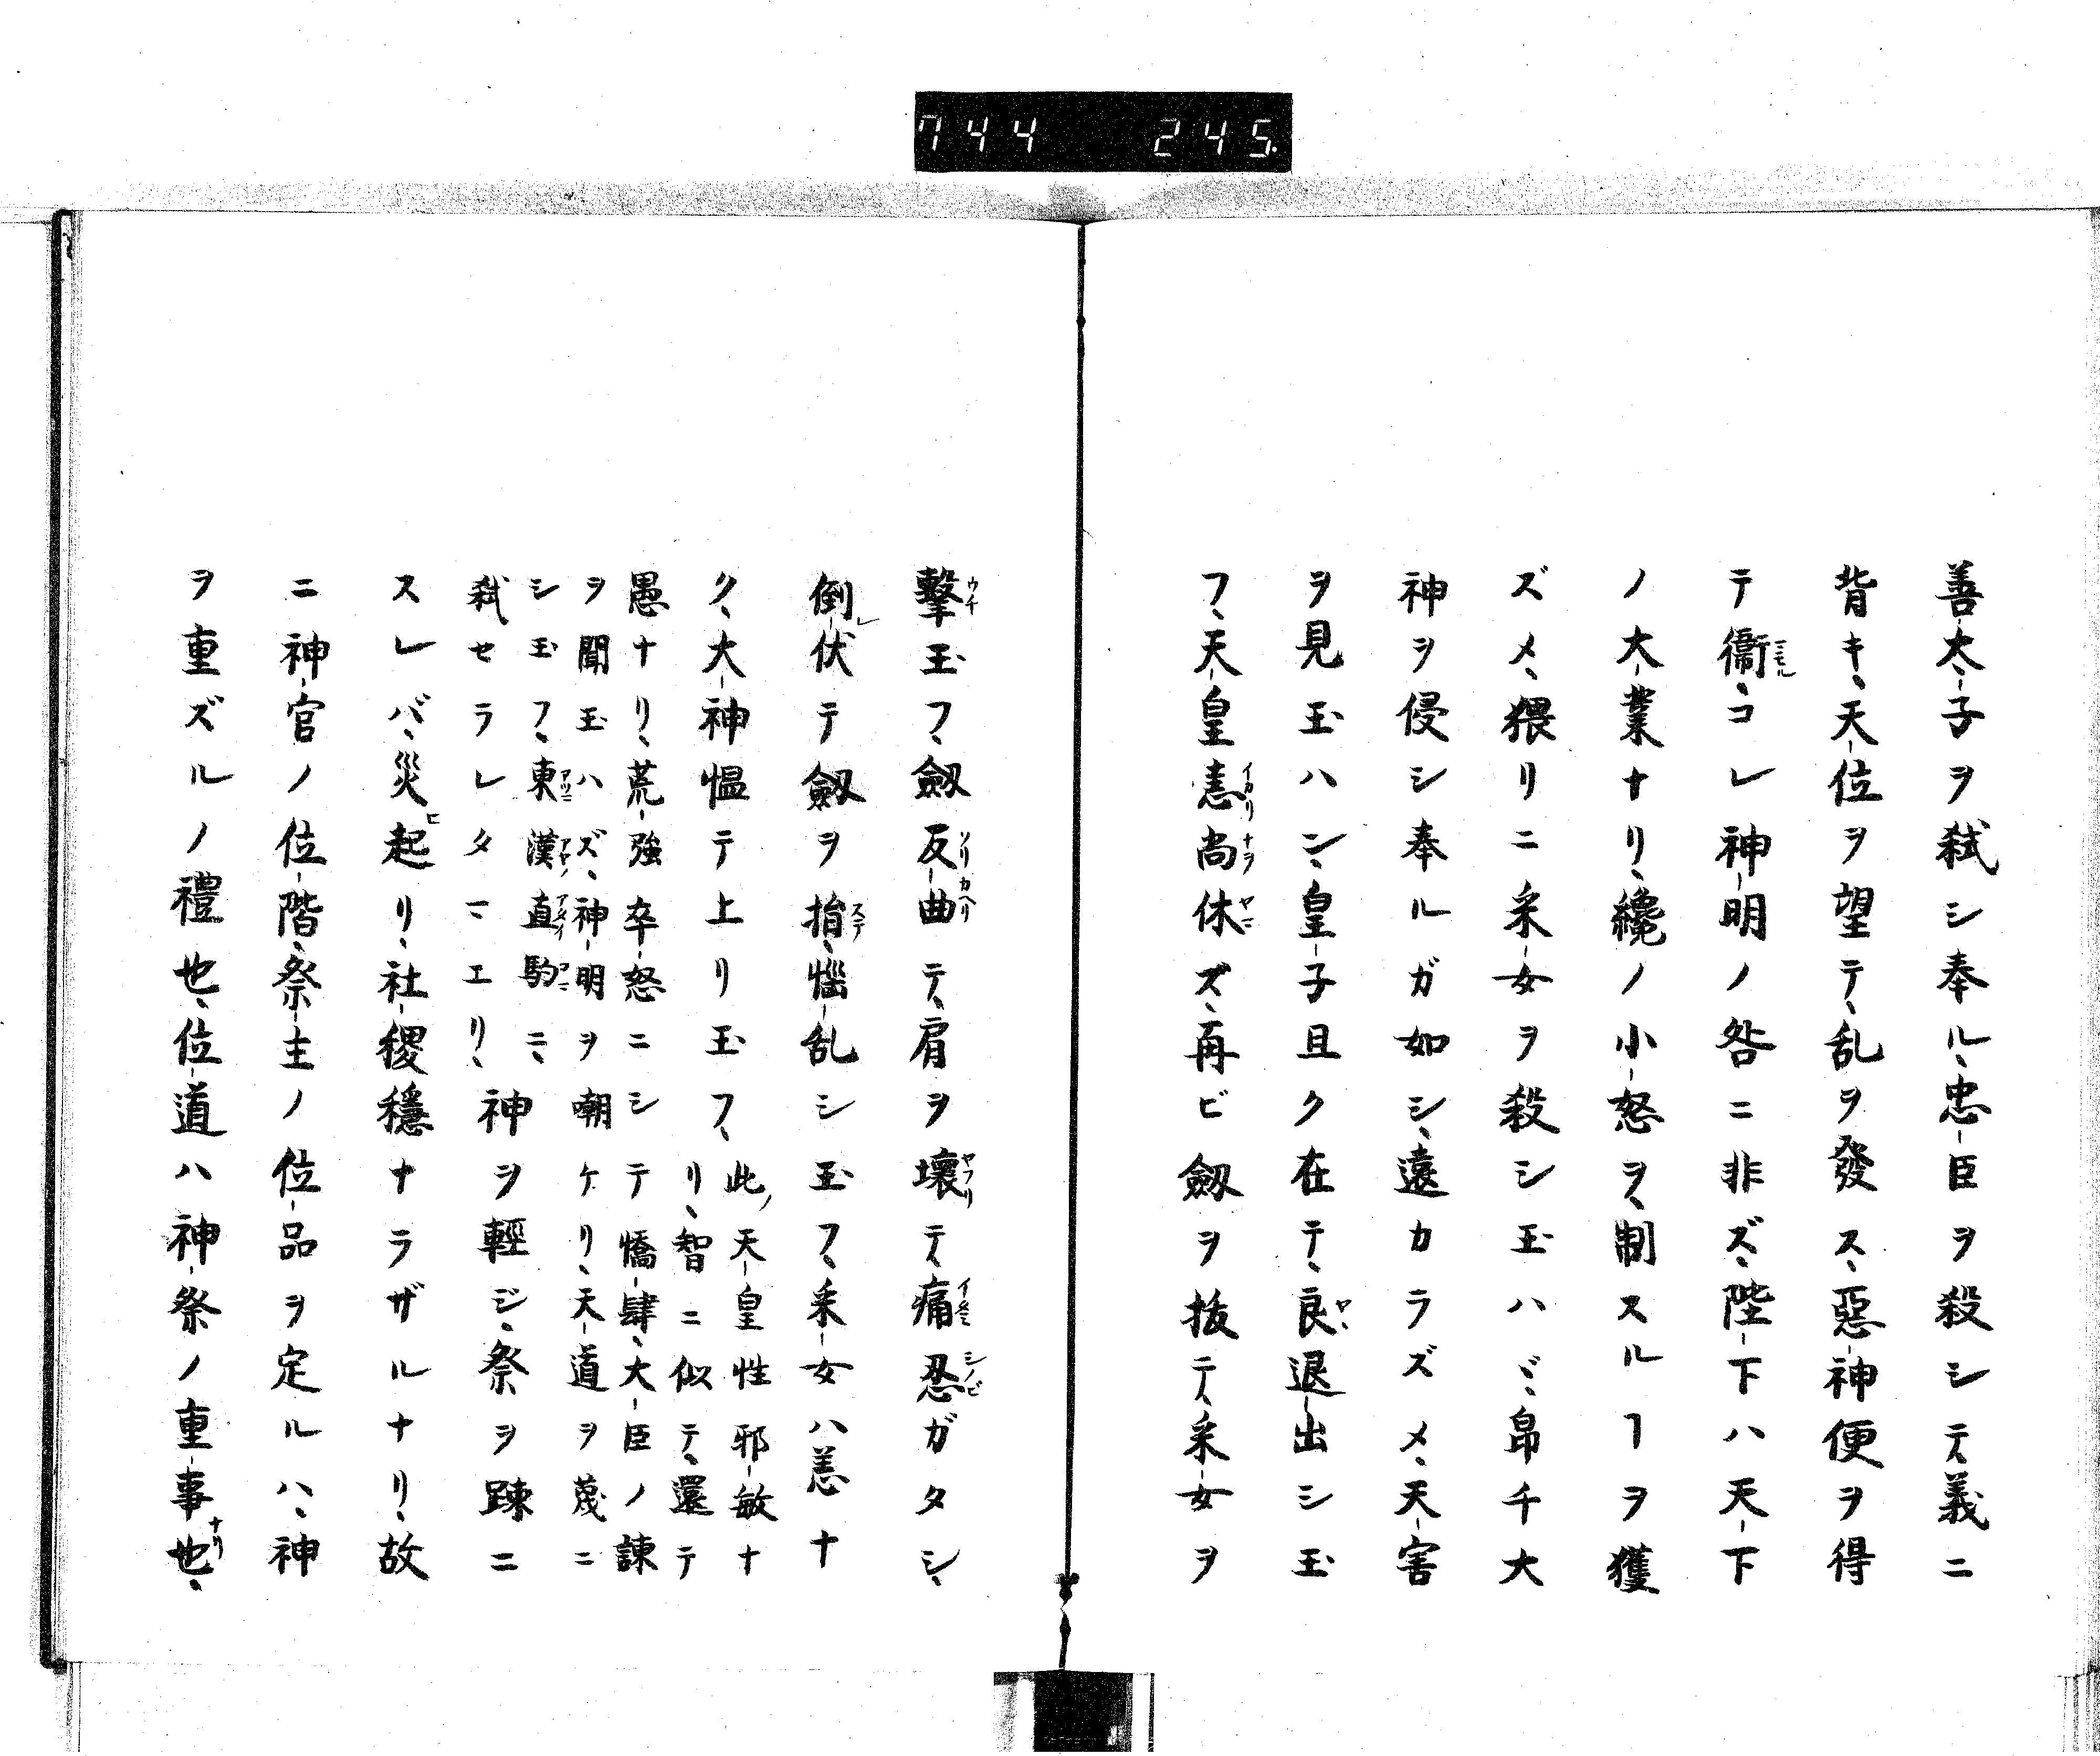 744 245.
善太子ヲ弑シ奉ル、忠臣ヲ殺シテ、義ニ
背キ、天位ヲ望テ、乱ヲ發ス、惡神便ヲ得
テ衞、コレ神明ノ咎ニ非ズ、陛下ハ天下
ノ大業ナリ、纔ノ小怒ヲ、制スルヿヲ獲
ズメ、猥リニ釆女ヲ殺シ玉ハヾ、帛千大
神ヲ侵シ奉ルガ如シ、遠カラズメ、天害
ヲ見玉ハン、皇子且ク在テ、良退出シ玉
フ、天皇恚尚休ズ、再ビ劔ヲ抜テ、釆女ヲ
擊玉フ、劔反曲テ、肩ヲ壞テ、痛忍ガタシ、
倒レ伏テ劔ヲ捐、惱乱シ玉フ、釆女ハ恙ナ
ク、大神愠テ上リ玉フ、此ノ天皇性邪敏ナ
リ、智ニ似テ、還テ
愚ナリ、荒強卒怒ニシテ憍肆、大臣ノ諫
ヲ聞玉ハズ、神明ヲ嘲ケリ、天道ヲ蔑ニ
シ玉フ、東漢直駒ニ、
弑セラレタマエリ、神ヲ輕ジ、祭ヲ踈ニ
スレバ、災ヒ起リ、社稷穩ナラザルナリ、故
ニ神官ノ位階、祭主ノ位品ヲ定ルハ、神
ヲ重ズルノ禮也、位道ハ神祭ノ重事也、